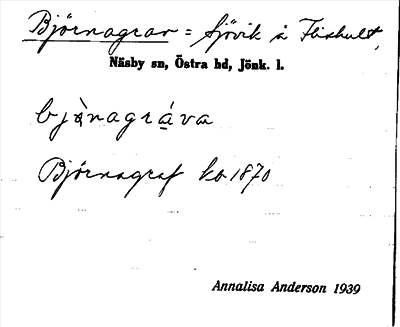 Björnagrav = Sjövik å Fliskult,
Näsby sn, Östra hd, Jönk. l.
bjò̱rnagrá̱va
Björnagraf kb 1870
Annalisa Anderson 1939